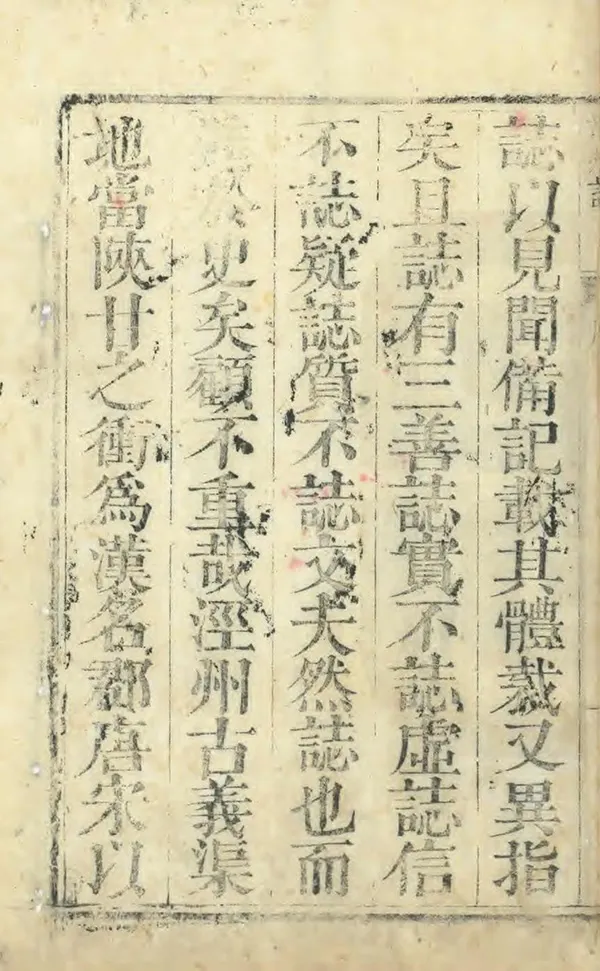 誌以見聞備記載其體裁又異指
矣且誌有三善誌實不誌虛誌信
不誌疑誌質不誌文夫然誌也而
史矣顧不重哉涇州古義渠
地當陜甘之衝為漢名郡唐宋以